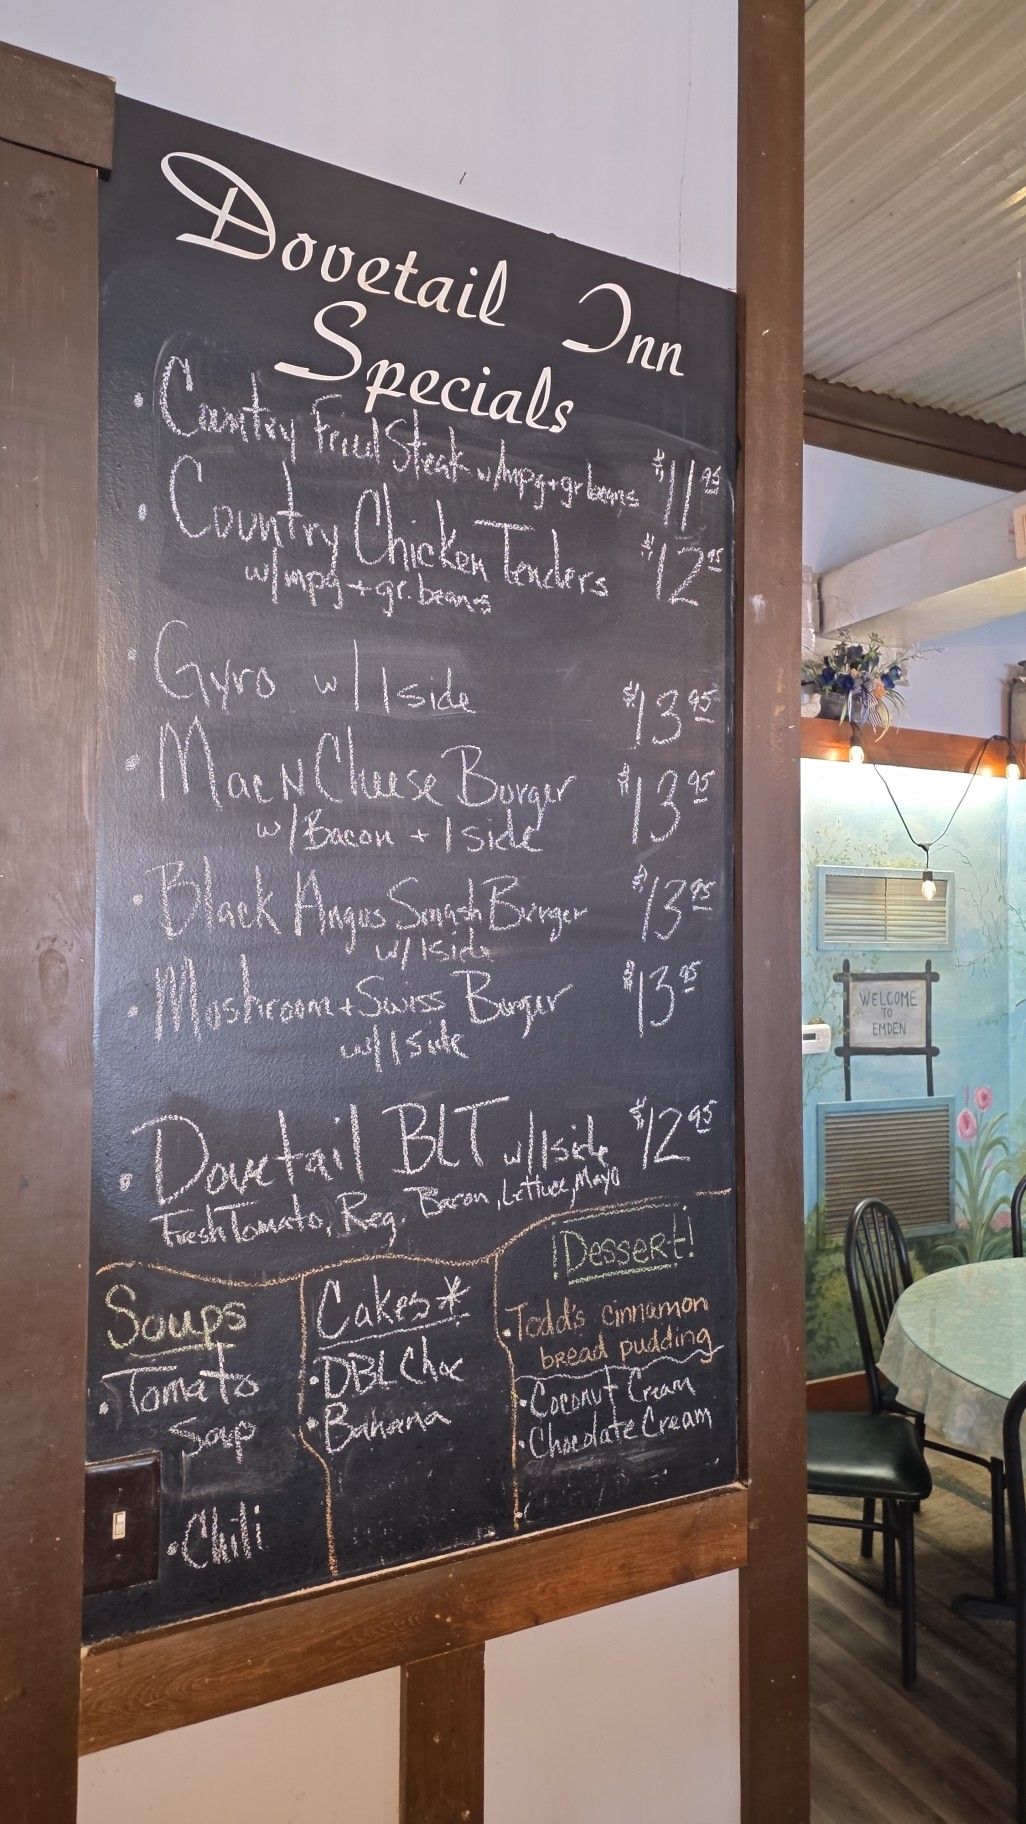 Dovetail Inn
Specials
• Country Fried Steak w/mpg+gr beans $11.95
• Country Chicken Tenders $12.95
w/mpg+gr. beans
• Gyro w/ 1 side $13.95
• Mac N Cheese Burger $13.95
w/Bacon + 1 side
• Black Angus Smash Burger $13.95
w/1 side
• Mushroom + Swiss Burger $13.95
w/1 side
• Dovetail BLT w/1 side $12.95
Fresh Tomato, Reg. Bacon, Lettuce, Mayo
Soups
• Tomato
Soup
• Chili
Cakes*
• DBL Choc
• Banana
¡Dessert!
• Todd's cinnamon
bread pudding
• Coconut Cream
• Chocolate Cream
WELCOME
TO
EMDEN